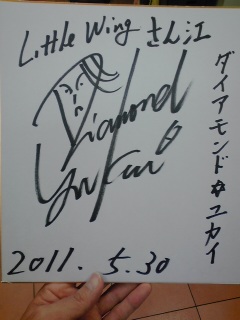 Little Wing さん江
Diamond
Yukai
ダイアモンド☆ユカイ
2011. 5.30